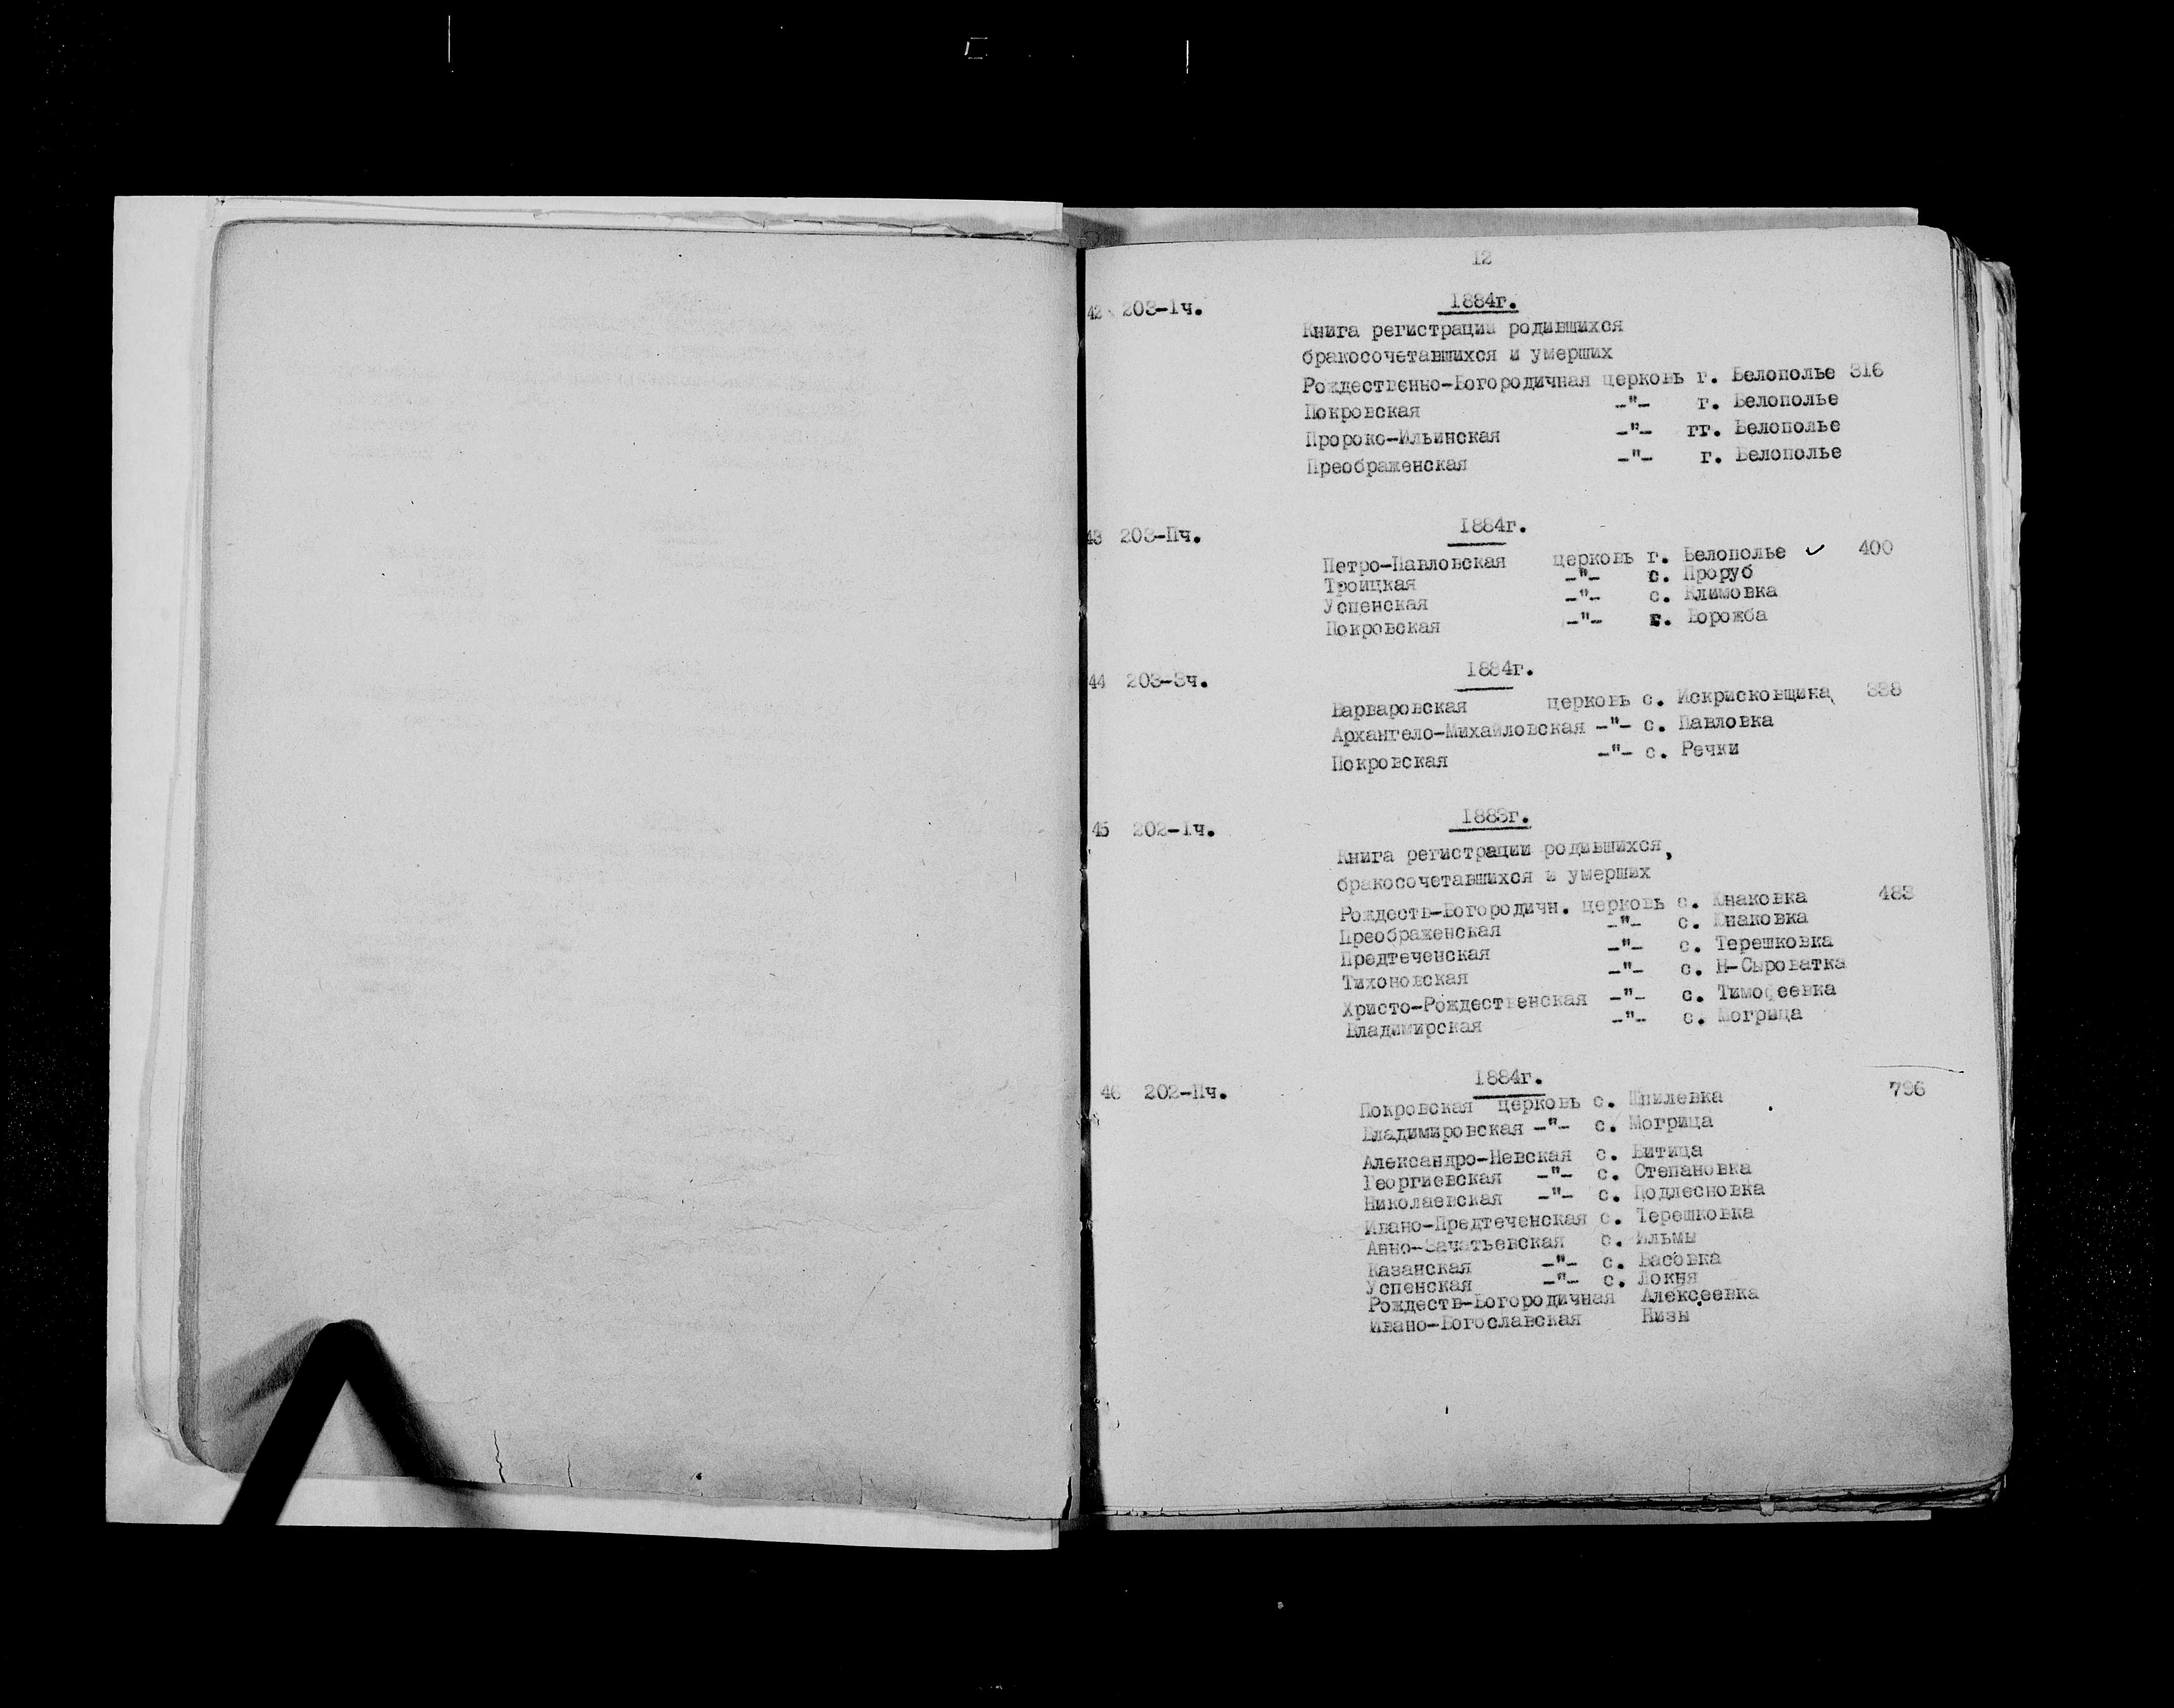 12
42 203-Iч. 1884г.
Книга регистрации родившихся
бракосочетавшихся и умерших
Рождественно-Богородичная церковь г. Белополье 316
Покровская -"- г. Белополье
Пророко-Ильинская -"- гг. Белополье
Преображенская -"- г. Белополье
43 203-Пч. 1884г.
Петро-Павловская церковь г. Белополье ✓ 400
Троицкая -"- с. Проруб
Успенская -"- с. Климовка
Покровская -"- г. Ворожба
44 203-3ч. 1884г.
Варваровская церковь с. Искрисковщина 338
Архангело-Михайловская -"- с. Павловка
Покровская -"- с. Речки
45 202-Iч. 1883г.
Книга регистрации родившихся,
бракосочетавшихся и умерших
Рождеств-Богородичн. церковь с. Юнаковка 483
Преображенская -"- с. Юнаковка
Предтеченская -"- с. Терешковка
Тихоновская -"- с. Н-Сыроватка
Христо-Рождественская -"- с. Тимофеевка
Владимирская -"- с. Могрица
46 202-Пч. 1884г.
Покровская церковь с. Шпилевка 796
Владимировская -"- с. Могрица
Александро-Невская с. Битица
Георгиевская -"- с. Степановка
Николаевская -"- с. Подлесновка
Ивано-Предтеченская с. Терешковка
Анно-Зачатьевская с. Ильмы
Казанская -"- с. Басовка
Успенская -"- с. Локня
Рождеств-Богородичная Алексеевка
Ивано-Богославская Низы